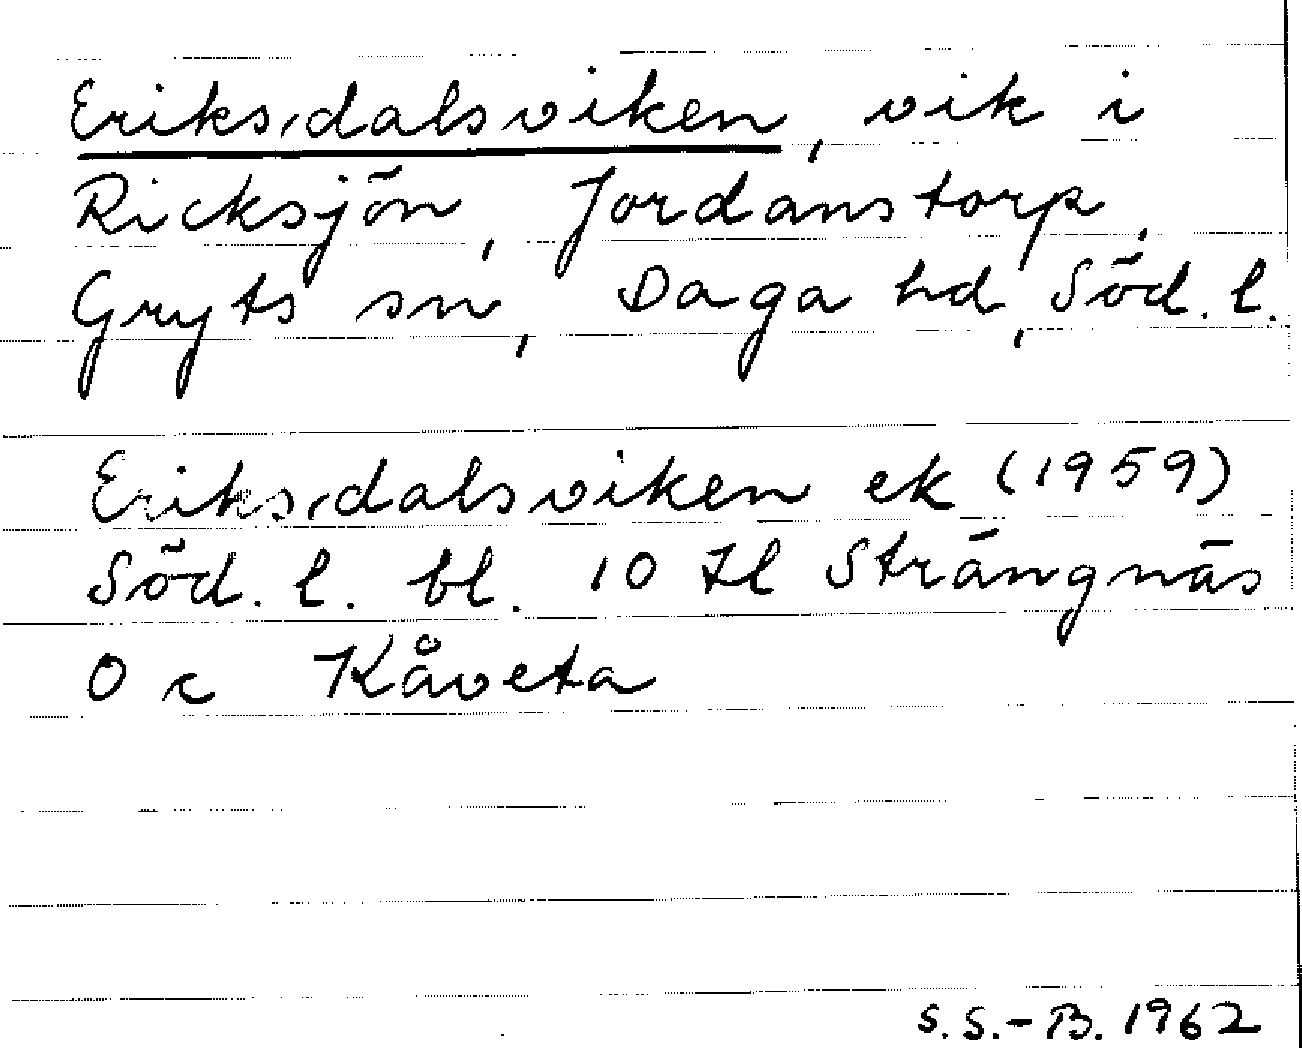 Eriksdalsviken, vik i
Ricksjön, Jordanstorp,
Gryts sn, Daga hd, Söd. l.
Eriksdalsviken ek (1959)
Söd. l. bl. 10 Il Strängnäs
O c Kåveta
S.S.-B. 1962